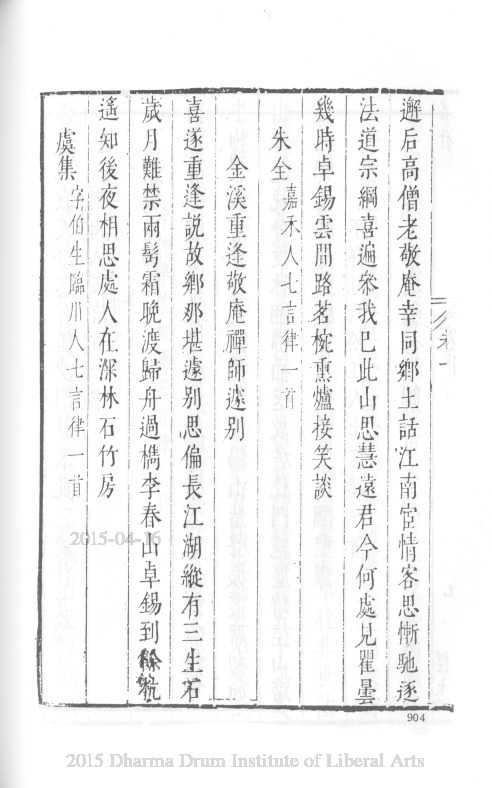 邂后高僧老敬庵幸同鄉土話江南宦情客思慚馳逐
法道宗綱喜遍叅我已此山思慧遠君今何處見瞿曇
幾時卓錫雲間路茗椀熏爐接笑談
朱全嘉禾人七言律一首
金溪重逢敬庵禪師遽別
喜遂重逢説故鄉那堪遽別思偏長江湖縱有三生石
歲月難禁兩鬢霜晚渡歸舟過檇李春山卓錫到餘杭
遙知後夜相思處人在深林石竹房
虞集字伯生臨川人七言律一首
卷一
904
2015-04-16
2015 Dharma Drum Institute of Liberal Arts